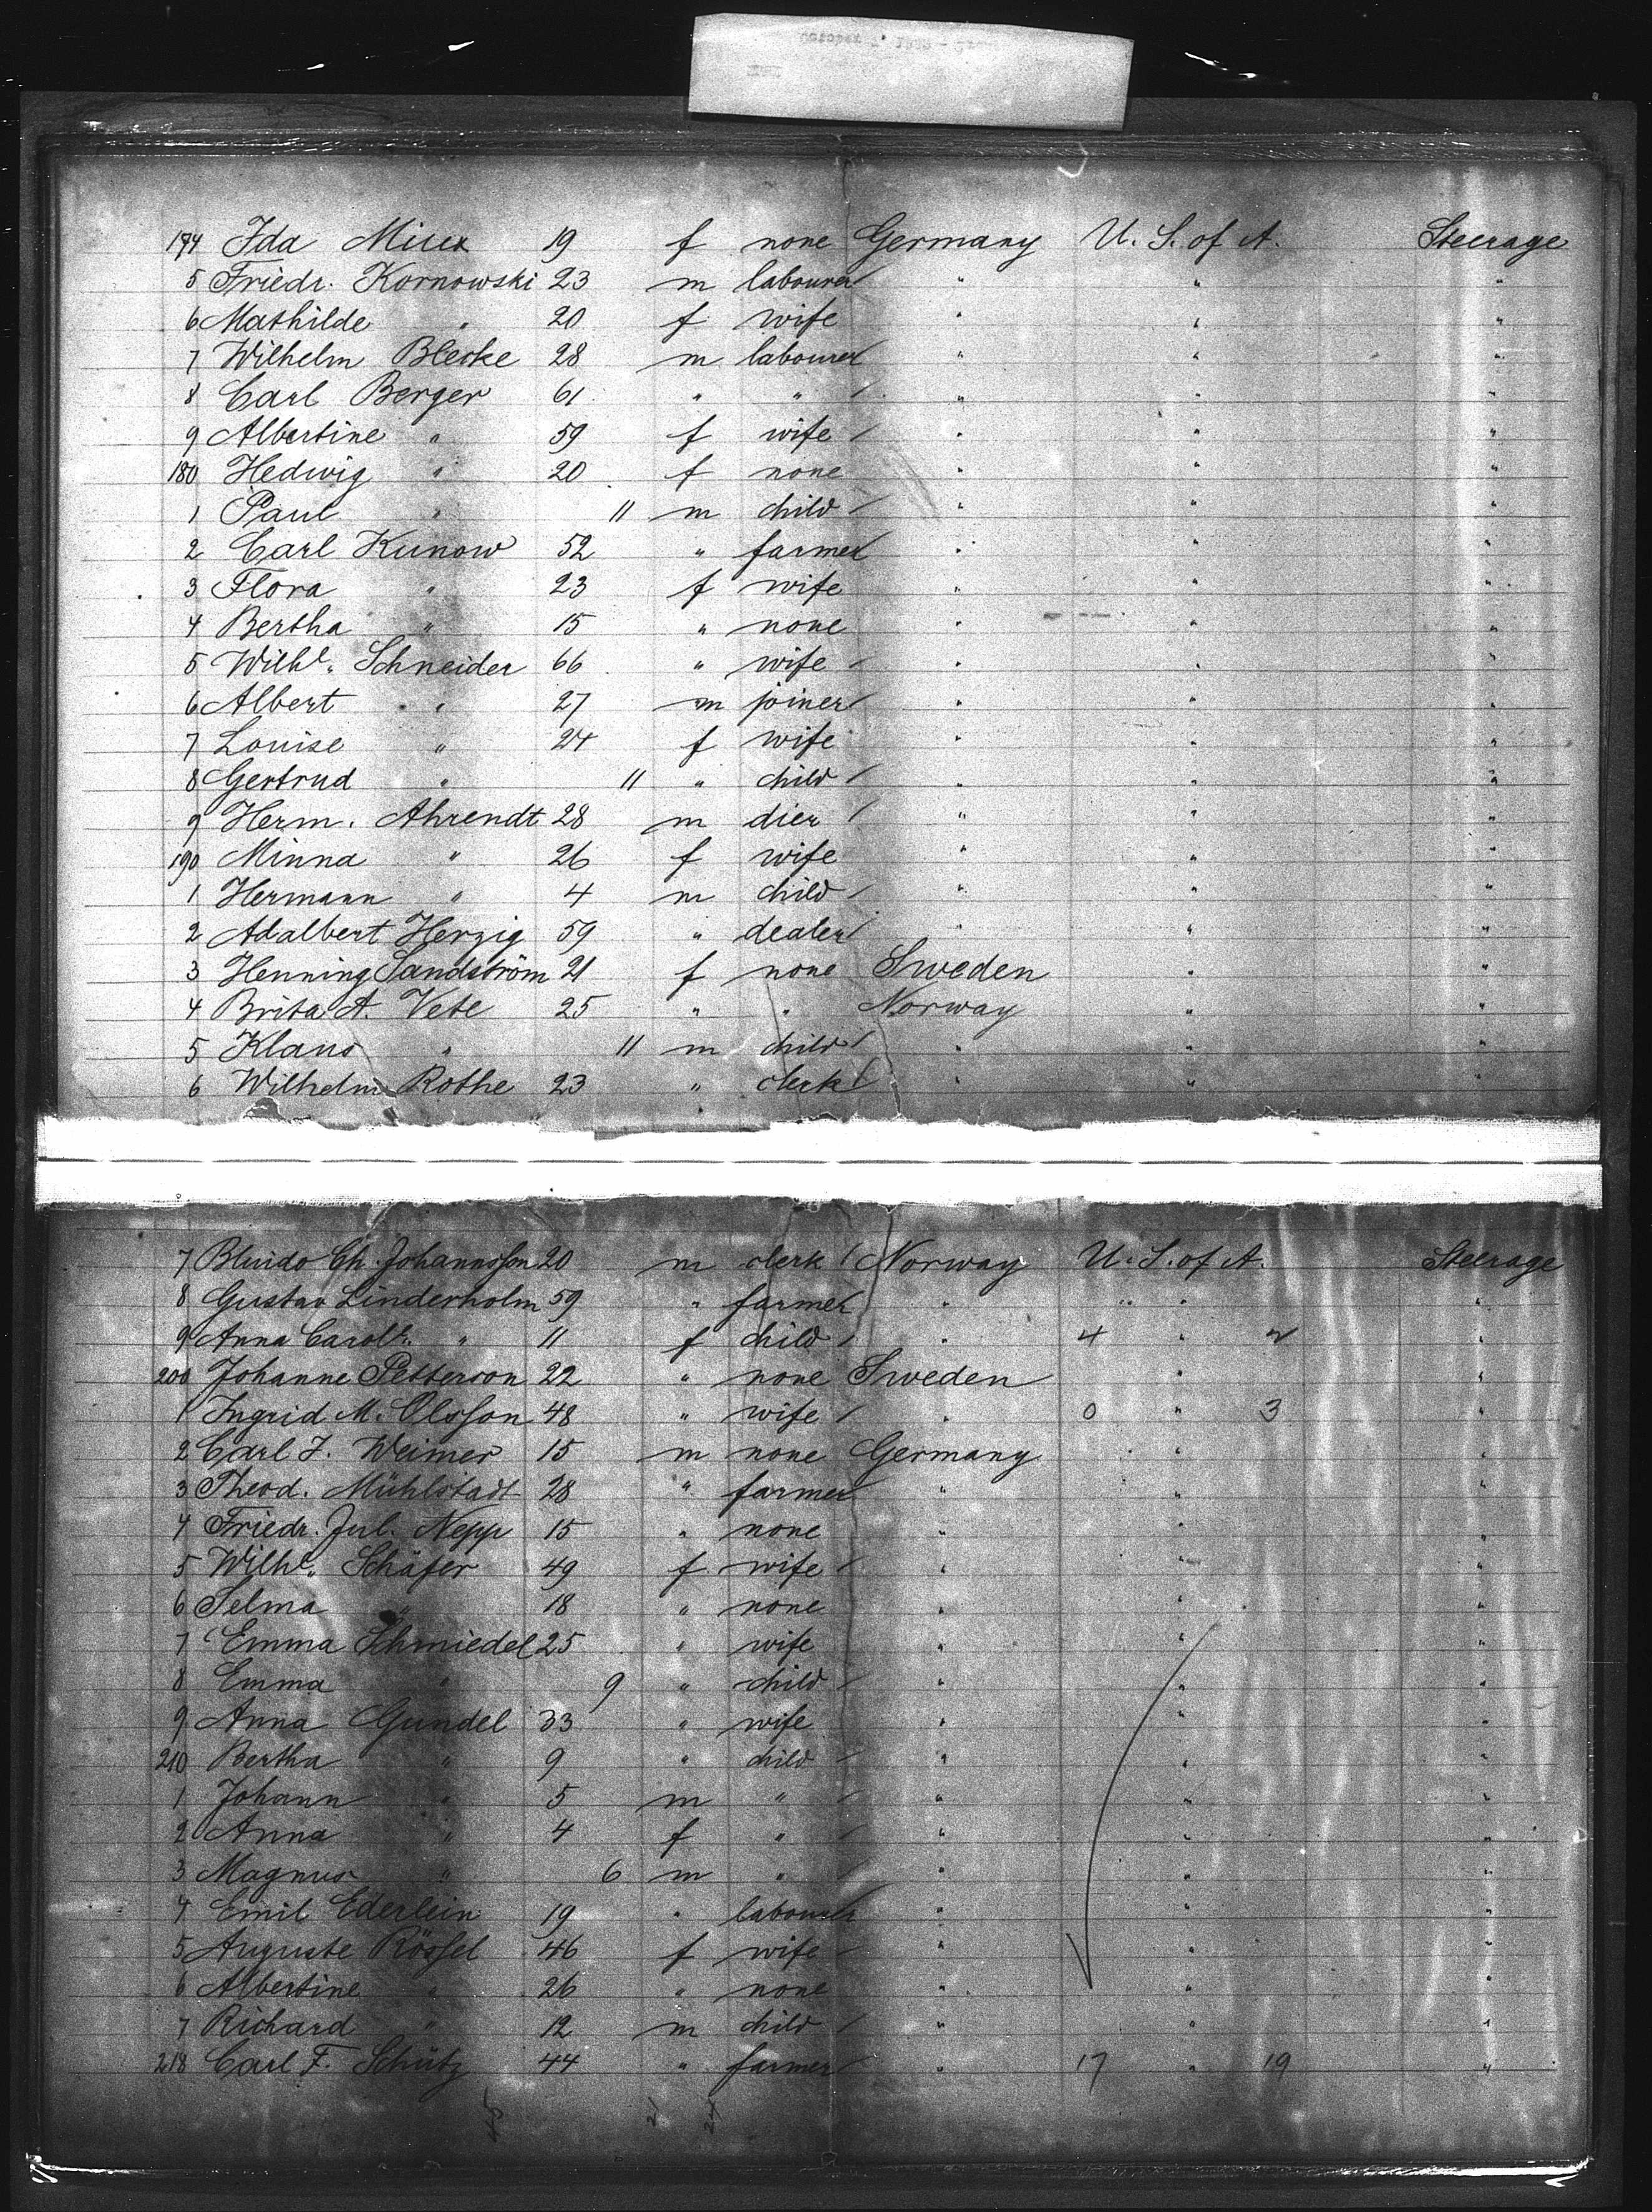 174 Ida 19 f none Germany U. S. of A. Steerage
5 Friedr. Kornowski 23 m labourer " " "
6 Mathilde " 20 f wife " " "
7 Wilhelm Blecke 28 m labourer " " "
8 Carl Berger 61 " " " " "
9 Albertine " 59 f wife " " "
180 Hedwig " 20 f none " " "
1 Paul " 11 m child " " "
2 Carl Kunow 52 " farmer " " "
3 Flora " 23 f wife " " "
4 Bertha " 15 " none " " "
5 Wilhe. Schneider 66 " wife " " "
6 Albert " 27 m joiner " " "
7 Louise " 24 f wife " " "
8 Gertrud " 11 " child " " "
9 Herm. Ahrendt 28 m dier " " "
190 Minna " 26 f wife " " "
1 Hermann " 4 m child " " "
2 Adalbert Herzig 59 " dealer " " "
3 Henning Sandström 21 f none Sweden " "
4 Brita A. Vete 25 " " Norway " "
5 Klaus " 11 m child " " "
6 Wilhelm Rothe 23 " clerk " " "
7 Ch. Johannsson 20 m clerk Norway U. S. of A. Steerage
8 Gustav Linderholm 59 " farmer " " " "
9 Anna Carole. " 11 f child " 4 " 2 "
200 Johanne Petterson 22 " none Sweden " "
1 Ingrid M. Olsson 48 " wife " 0 " 3 "
2 Carl J. Weimer 15 m none Germany " "
3 Theod. Mühlstadt 28 " farmer " " "
4 Friedr. Jul. Nepp 15 " none " " "
5 Wilhe. Schäfer 49 f wife " " "
6 Selma " 18 " none " " "
7 Emma Schmiedel 25 " wife " " "
8 Emma " 9 " child " " "
9 Anna Gundel 33 " wife " " "
210 Bertha " 9 " child " " "
1 Johann " 5 m " " " "
2 Anna " 4 f " " " "
3 Magnus " 6 m " " " "
4 Emil Ederlein 19 " labourer " " "
5 Auguste Rössel 46 f wife " " "
6 Albertine " 26 " none " " "
7 Richard " 12 m child " " "
218 Carl F. Schütz 44 " farmer " 17 " 19 "